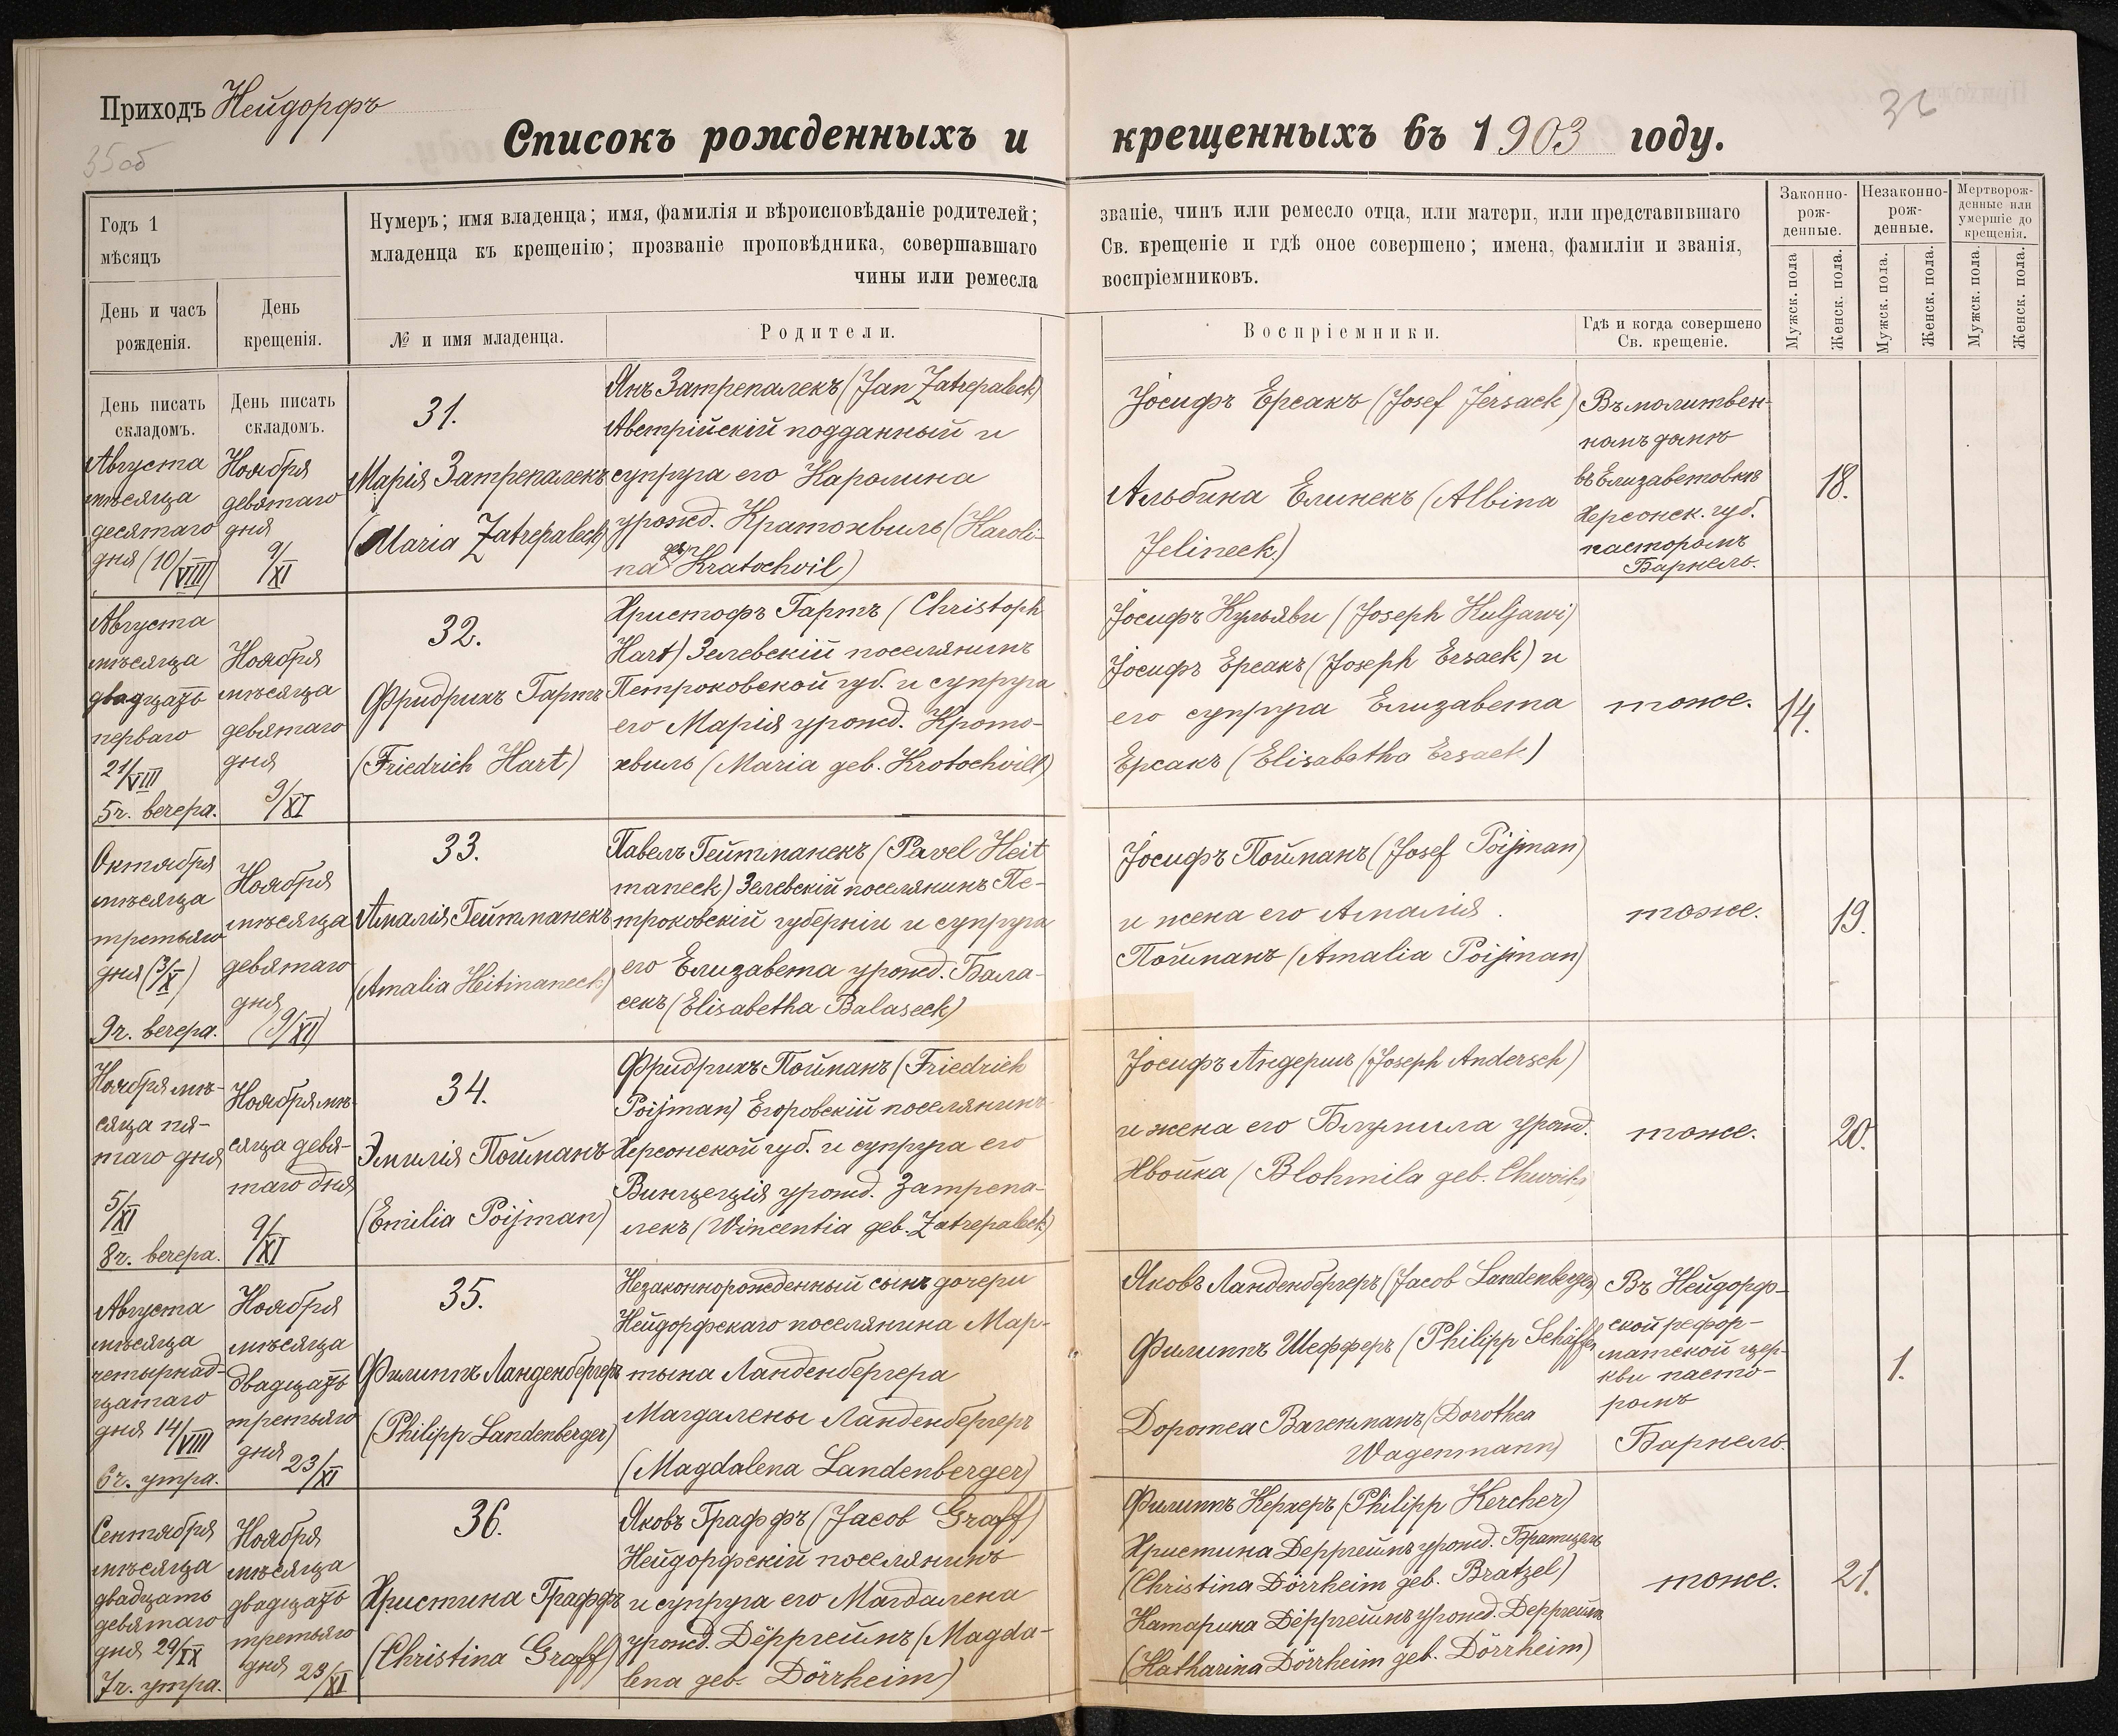 Приходъ Нейдорфъ
35об
36
Списокъ рожденныхъ и крещенныхъ въ 1903 году.
Годъ 1
мѣсяцъ
Нумеръ; имя владенца; имя, фамилія и вѣроисповѣданіе родителей;
младенца къ крещенію; прозваніе проповѣдника, совершавшаго
чины или ремесла
званіе, чинъ или ремесло отца, или матери, или представившаго
Св. крещеніе и гдѣ оное совершено; имена, фамиліи и званія,
воспріемниковъ.
Законно-
рож-
денные.
Незаконно-
рож-
денные.
Мертворож-
денные или
умершіе до
крещенія.
День и часъ
рожденія.
День
крещенія.
№ и имя младенца.
Родители.
Воспріемники.
Гдѣ и когда совершено
Св. крещеніе.
Мужск. пола
Женск. пола.
Мужск. пола.
Женск. пола.
Мужск. пола.
Женск. пола.
День писать
складомъ.
День писать
складомъ.
Августа
мѣсяца
десятаго
дня (10/VIII)
Ноября
девятаго
дня
9/XI
31.
Марія Затрепалекъ
(Maria Zatrepaleck)
Янъ Затрепалекъ (Jan Zatrepaleck)
Австрійскій подданный и
супруга его Каролина
урожд. Кратохвиль (Karoli-
na geb. Kratochvil)
Іосифъ Ерсакъ (Josef Jersack)
Альбина Елинекъ (Albina
Jelineck.)
Въ молитвен-
номъ домѣ
въ Елизаветовкѣ
Херсонск. губ.
пасторомъ
Барнель.
18.
Августа
мѣсяца
двадцать
перваго
21/VIII
5 ч. вечера.
Ноября
мѣсяца
девятаго
дня
9/XI
32.
Фридрихъ Гартъ
(Friedrich Hart)
Христофъ Гартъ (Christoph
Hart) Зелевскій поселянинъ
Петроковской губ. и супруга
его Марія урожд. Крото-
хвиль (Maria geb. Krotochvill)
Іосифъ Кульяви (Joseph Kuljawi)
Іосифъ Ерсакъ (Joseph Ersack) и
его супруга Елизавета
Ерсакъ (Elisabetha Ersack)
тоже.
14.
Октября
мѣсяца
третьяго
дня (3/X)
9 ч. вечера.
Ноября
мѣсяца
девятаго
дня
(9/XI)
33.
Амалія Гейтманекъ
(Amalia Heitmaneck)
Павелъ Гейтманекъ (Pavel Heit
maneck) Зелевскій поселянинъ Пе-
троковскій губерніи и супруга
его Елизавета урожд. Бала-
секъ (Elisabetha Balaseck)
Іосифъ Пойманъ (Josef Poijman)
и жена его Амалія
Пойманъ (Amalia Poijman)
тоже.
19.
Ноября мѣ-
сяца пя-
таго дня
5/XI
8 ч. вечера.
Ноября мѣ-
сяца девя-
таго дня
9/XI
34.
Эмилія Пойманъ
(Emilia Poijman)
Фридрихъ Пойманъ (Friedrich
Poijman) Егоровскій поселянинъ
Херсонской губ. и супруга его
Винценція урожд. Затрепа-
лекъ (Wincentia geb. Zatrepaleck)
Іосифъ Андершъ (Joseph Andersch)
и жена его Блумила урожд.
Хвойка (Blohmila geb. Chwoika)
тоже.
20.
Августа
мѣсяца
четырнад-
цатаго
дня 14/VIII
6 ч. утра.
Ноября
мѣсяца
двадцать
третьяго
дня 23/XI
35.
Филиппъ Ланденбергеръ
(Philipp Landenberger)
Незаконнорожденный сынъ дочери
Нейдорфскаго поселянина Мар-
тына Ланденбергера
Магдалены Ланденбергеръ
(Magdalena Landenberger)
Яковъ Ланденбергеръ (Jacob Landenberger)
Филиппъ Шефферъ (Philipp Schäffer
Доротеа Вагенманъ (Dorothea
Wagenmann)
Въ Нейдорф-
ской рефор-
матской цер-
кви пасто-
ромъ
Барнель.
1.
Сентября
мѣсяца
двадцать
девятаго
дня 29/IX
7 ч. утра.
Ноября
мѣсяца
двадцать
третьяго
дня 23/XI
36.
Христина Граффъ
(Christina Graff)
Яковъ Граффъ (Jacob Graff)
Нейдорфскій поселянинъ
и супруга его Магдалена
урожд. Дёрргеймъ (Magda-
lena geb. Dörrheim)
Филиппъ Керхеръ (Philipp Kercher)
Христина Дерргеймъ урожд. Братцель
(Christina Dörrheim geb. Bratzel)
Катарина Дёрргеймъ урожд. Дерргеймъ
(Katharina Dörrheim geb. Dörrheim)
тоже.
21.